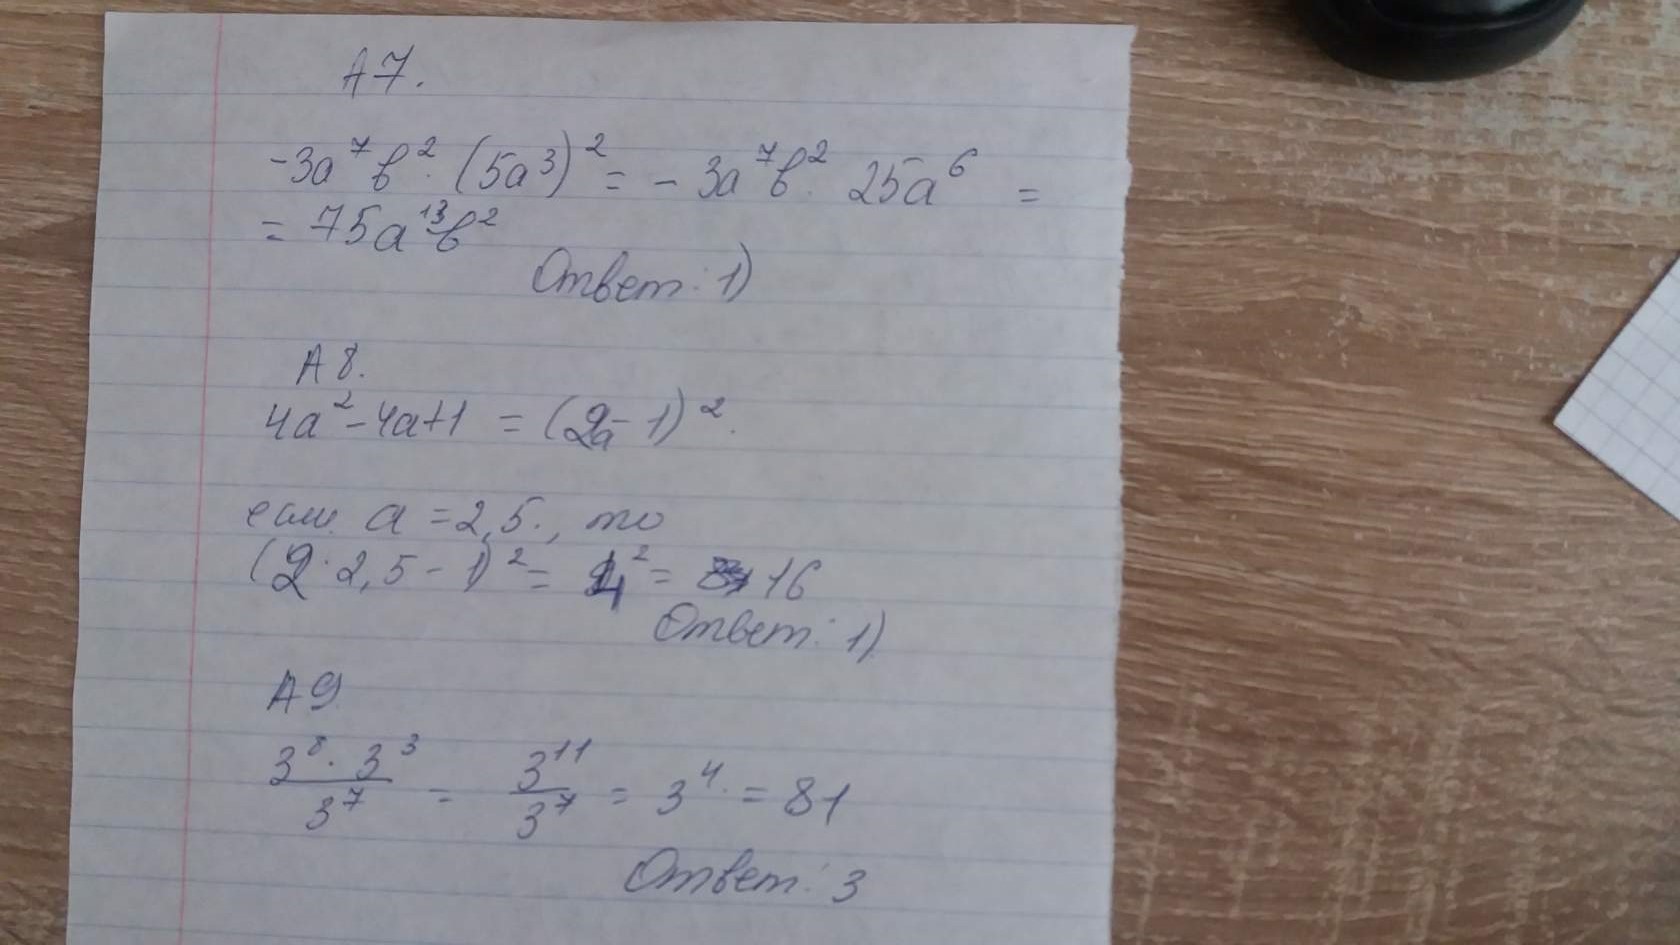 А 7.
-3a⁷b²·(5a³)² = - 3a⁷b²· 25a⁶ =
= 75a¹³b²
Ответ: 1)
А 8.
4a²-4a+1 = (2a-1)².
если a = 2,5., то
(2·2,5-1)² = 4² = 16
Ответ: 1)
А 9.
3⁸·3³/3⁷ = 3¹¹/3⁷ = 3⁴ = 81
Ответ: 3